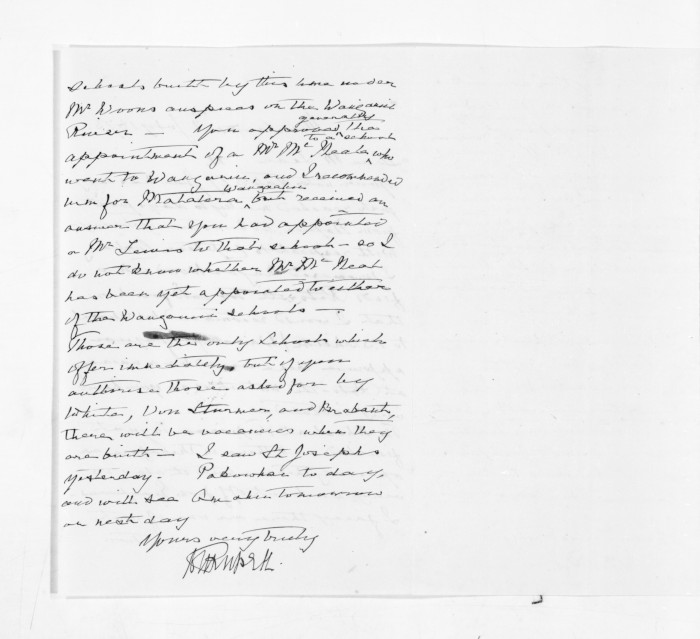 schools built by this time under
Mr Woons auspices on the Wanganui
River — You approved generally the
appointment of a Mr Mc Neal to a school who
went to Wanganui, and I recommended
him for Matatera Wangaehu but received an
answer that you had appointed
a Mr Lewis to that school — so I
do not know whether Mr Mc Neal
has been yet appointed to either
of the Wanganui schools —.
Those are the only Schools which
offer immediately, but if you
authorise those asked for by
White, Von Sturmer, and Brabant,
there will be vacancies when they
are built — I saw St Josephs
yesterday. Pakowhai to day,
and will see Omahu tomorrow
or next day
Yours very truly